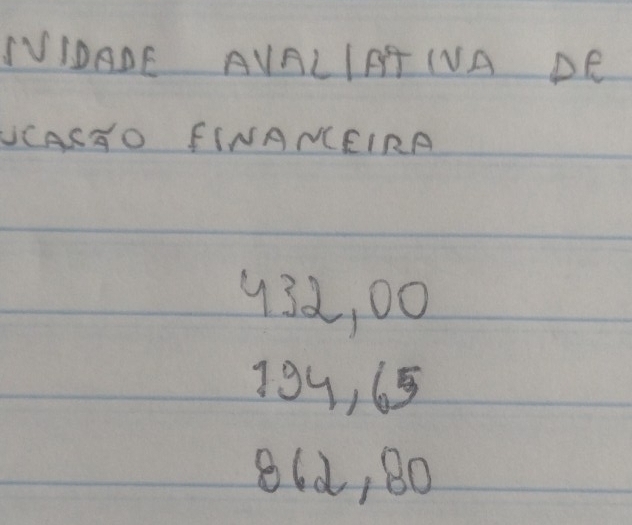 IVIDADE AVALIATIVA DE
UCAÇÃO FINANCEIRA
432,00
194,65
862,80